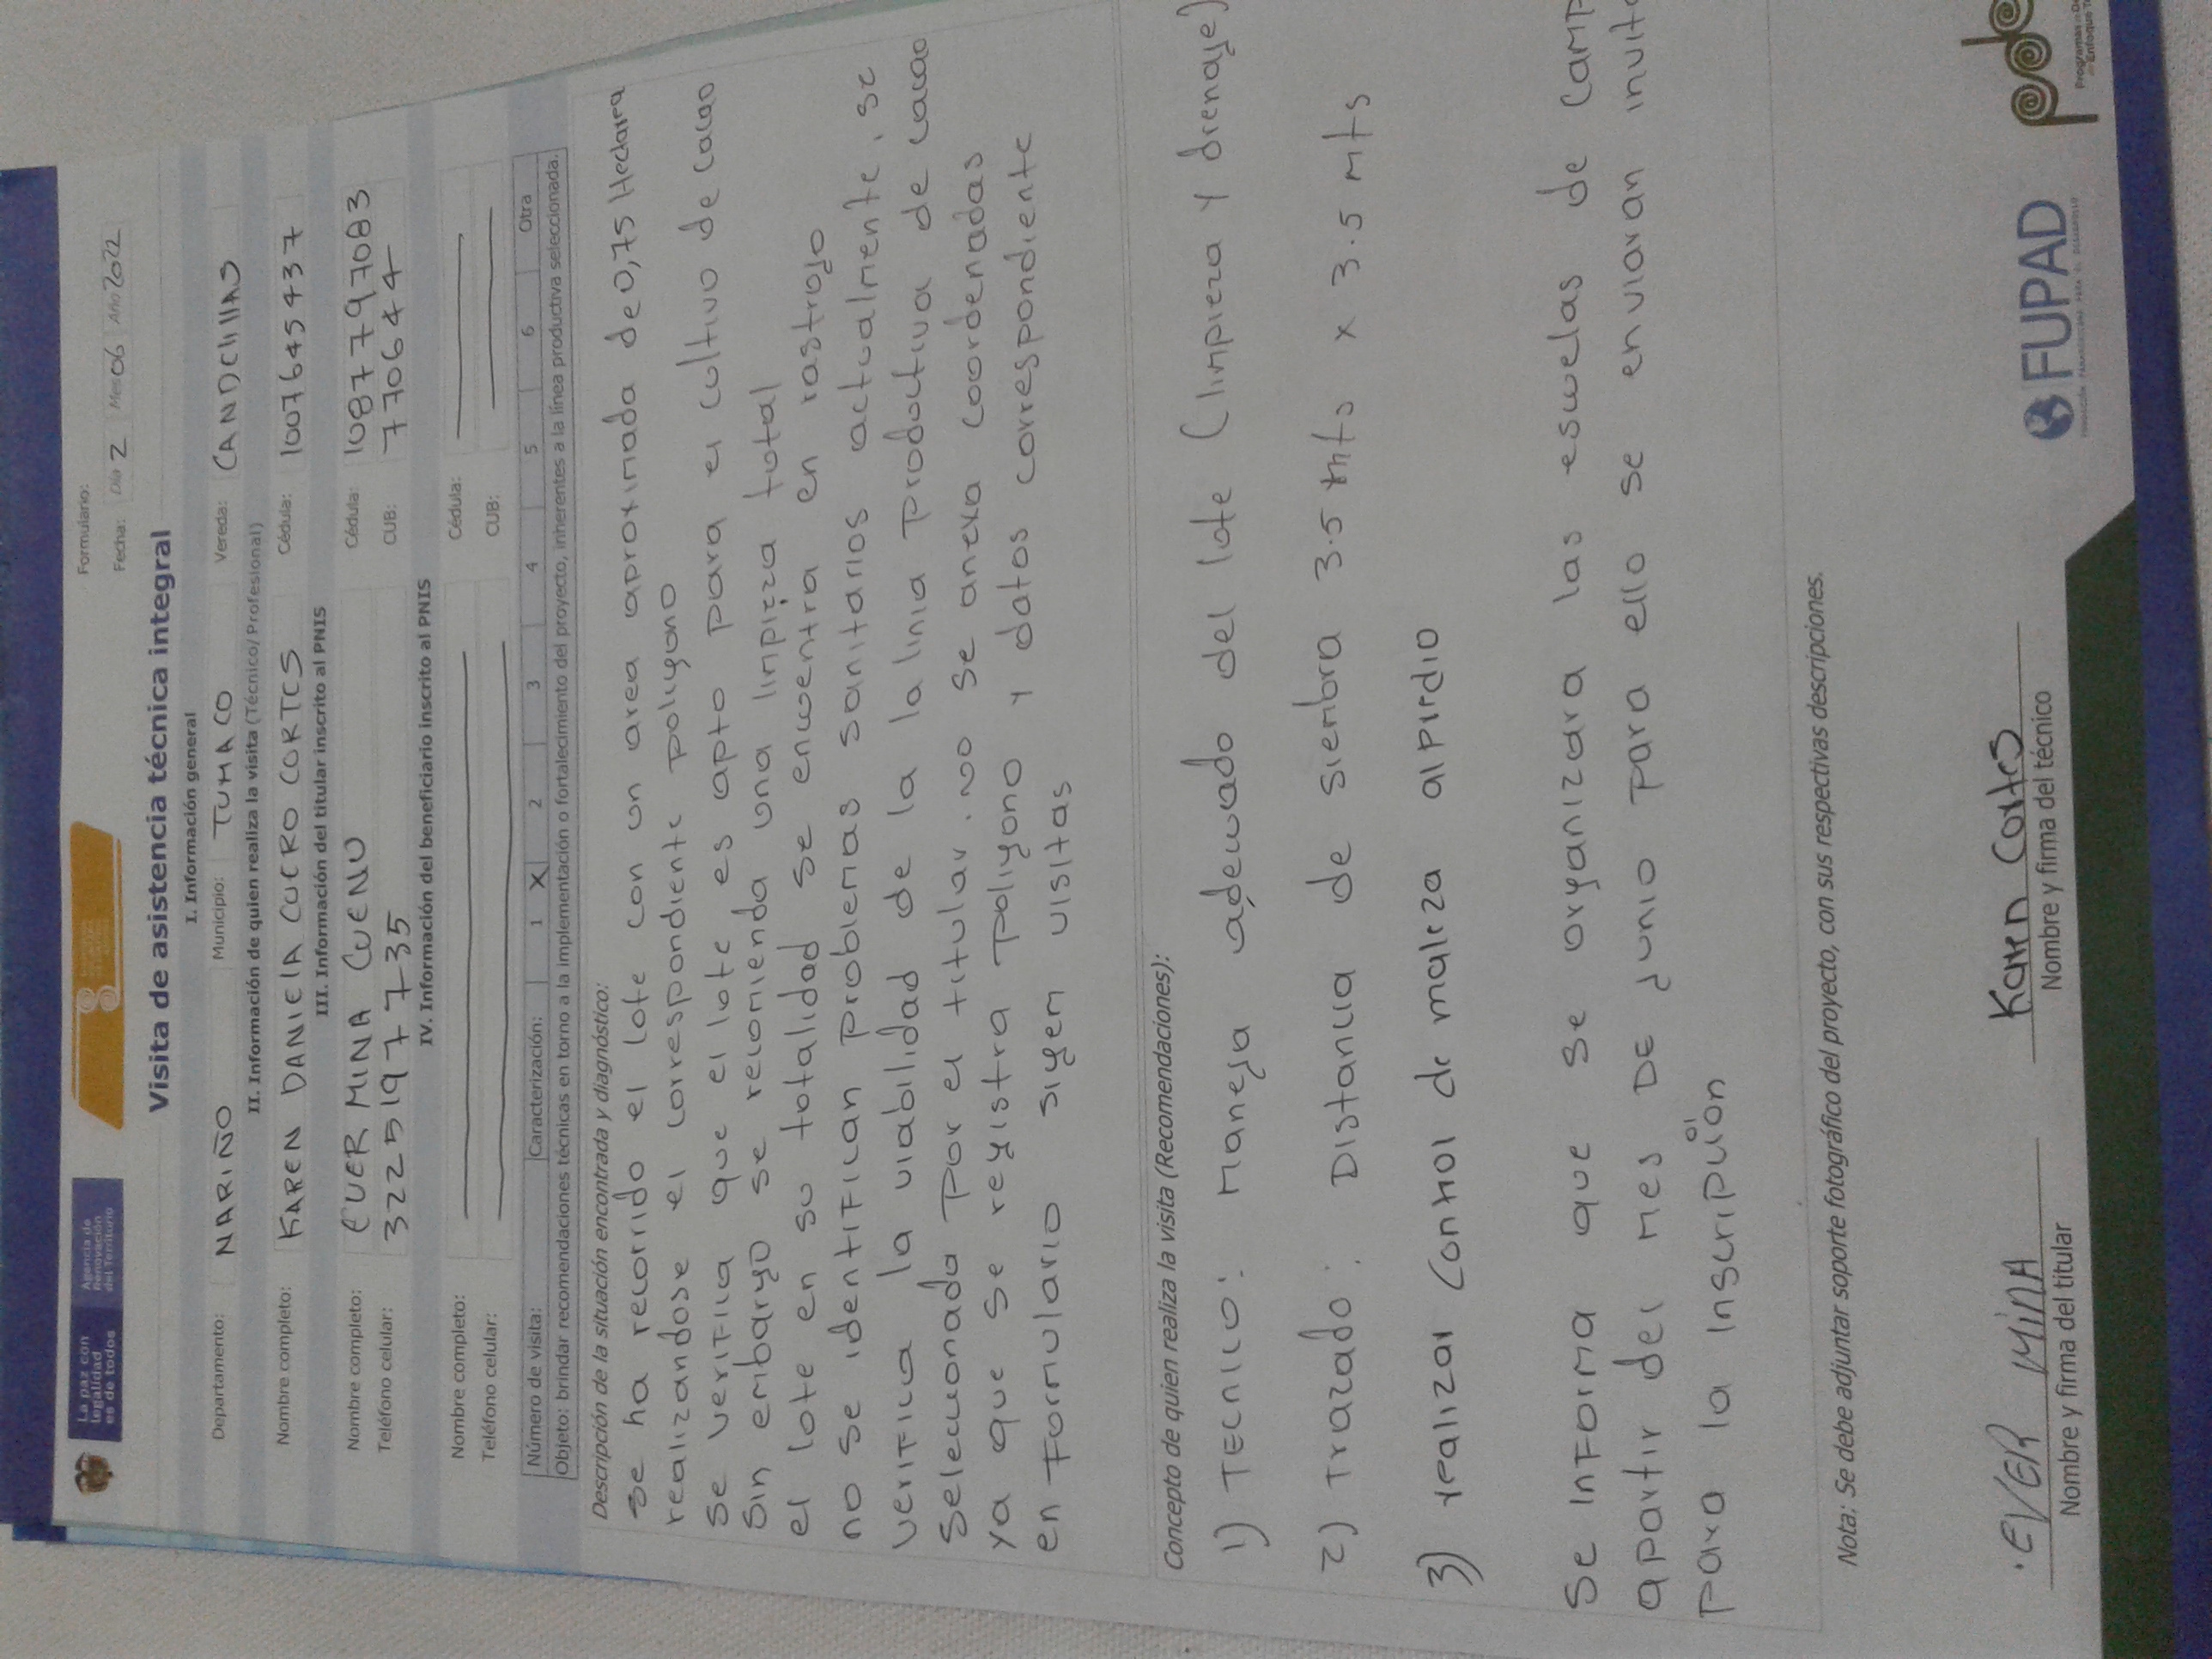 La paz con
legalidad
es de todos
Agencia de
Renovación
del Territorio
Formulario:
Fecha: Día 2 Mes 06 Año 2022
Visita de asistencia técnica integral
I. Información general
Departamento: NARIÑO Municipio: TUMACO Vereda: CANDElIllAS
II. Información de quien realiza la visita (Técnico/ Profesional)
Nombre completo: KAREN DANIElA CUERO CORTES Cédula: 1007645437
III. Información del titular inscrito al PNIS
Nombre completo: EVER MINA CUENU Cédula: 1087797083
Teléfono celular: 3225197735 CUB: 770644
IV. Información del beneficiario inscrito al PNIS
Nombre completo: Cédula:
Teléfono celular: CUB:
Número de visita: Caracterización: 1 X 2 3 4 5 6 Otra
Objeto: brindar recomendaciones técnicas en torno a la implementación o fortalecimiento del proyecto, inherentes a la línea productiva seleccionada.
Descripción de la situación encontrada y diagnóstico:
se ha recorrido el lote con un area aproximada de 0,75 Hectarea
realizandose el correspondiente poligono
se verifica que el lote es apto para el cultivo de cacao
Sin embargo se recomienda una limpieza total
el lote en su totalidad se encuentra en rastrojo
no se identifican problemas sanitarios actualmente, se
verifica la viabilidad de la linia productiva de cacao
seleccionada por el titular. no se anexa coordenadas
ya que se registra poligono y datos correspondiente
en formulario sigem visitas
Concepto de quien realiza la visita (Recomendaciones):
1) Tecnico: Maneja adecuado del lote (limpieza y drenaje)
2) Trazado: Distancia de siembra 3.5 mts x 3.5 mts
3) realizar control de maleza al predio
Se informa que se organizara las escuelas de camp
apartir del mes DE junio para ello se enviaran invita
para la inscripción
Nota: Se debe adjuntar soporte fotográfico del proyecto, con sus respectivas descripciones.
EVER MINA
Nombre y firma del titular
Karen Cortes
Nombre y firma del técnico
FUPAD
FUNDACIÓN PANAMERICANA PARA EL DESARROLLO
pde
Programas de De
Enfoque Te